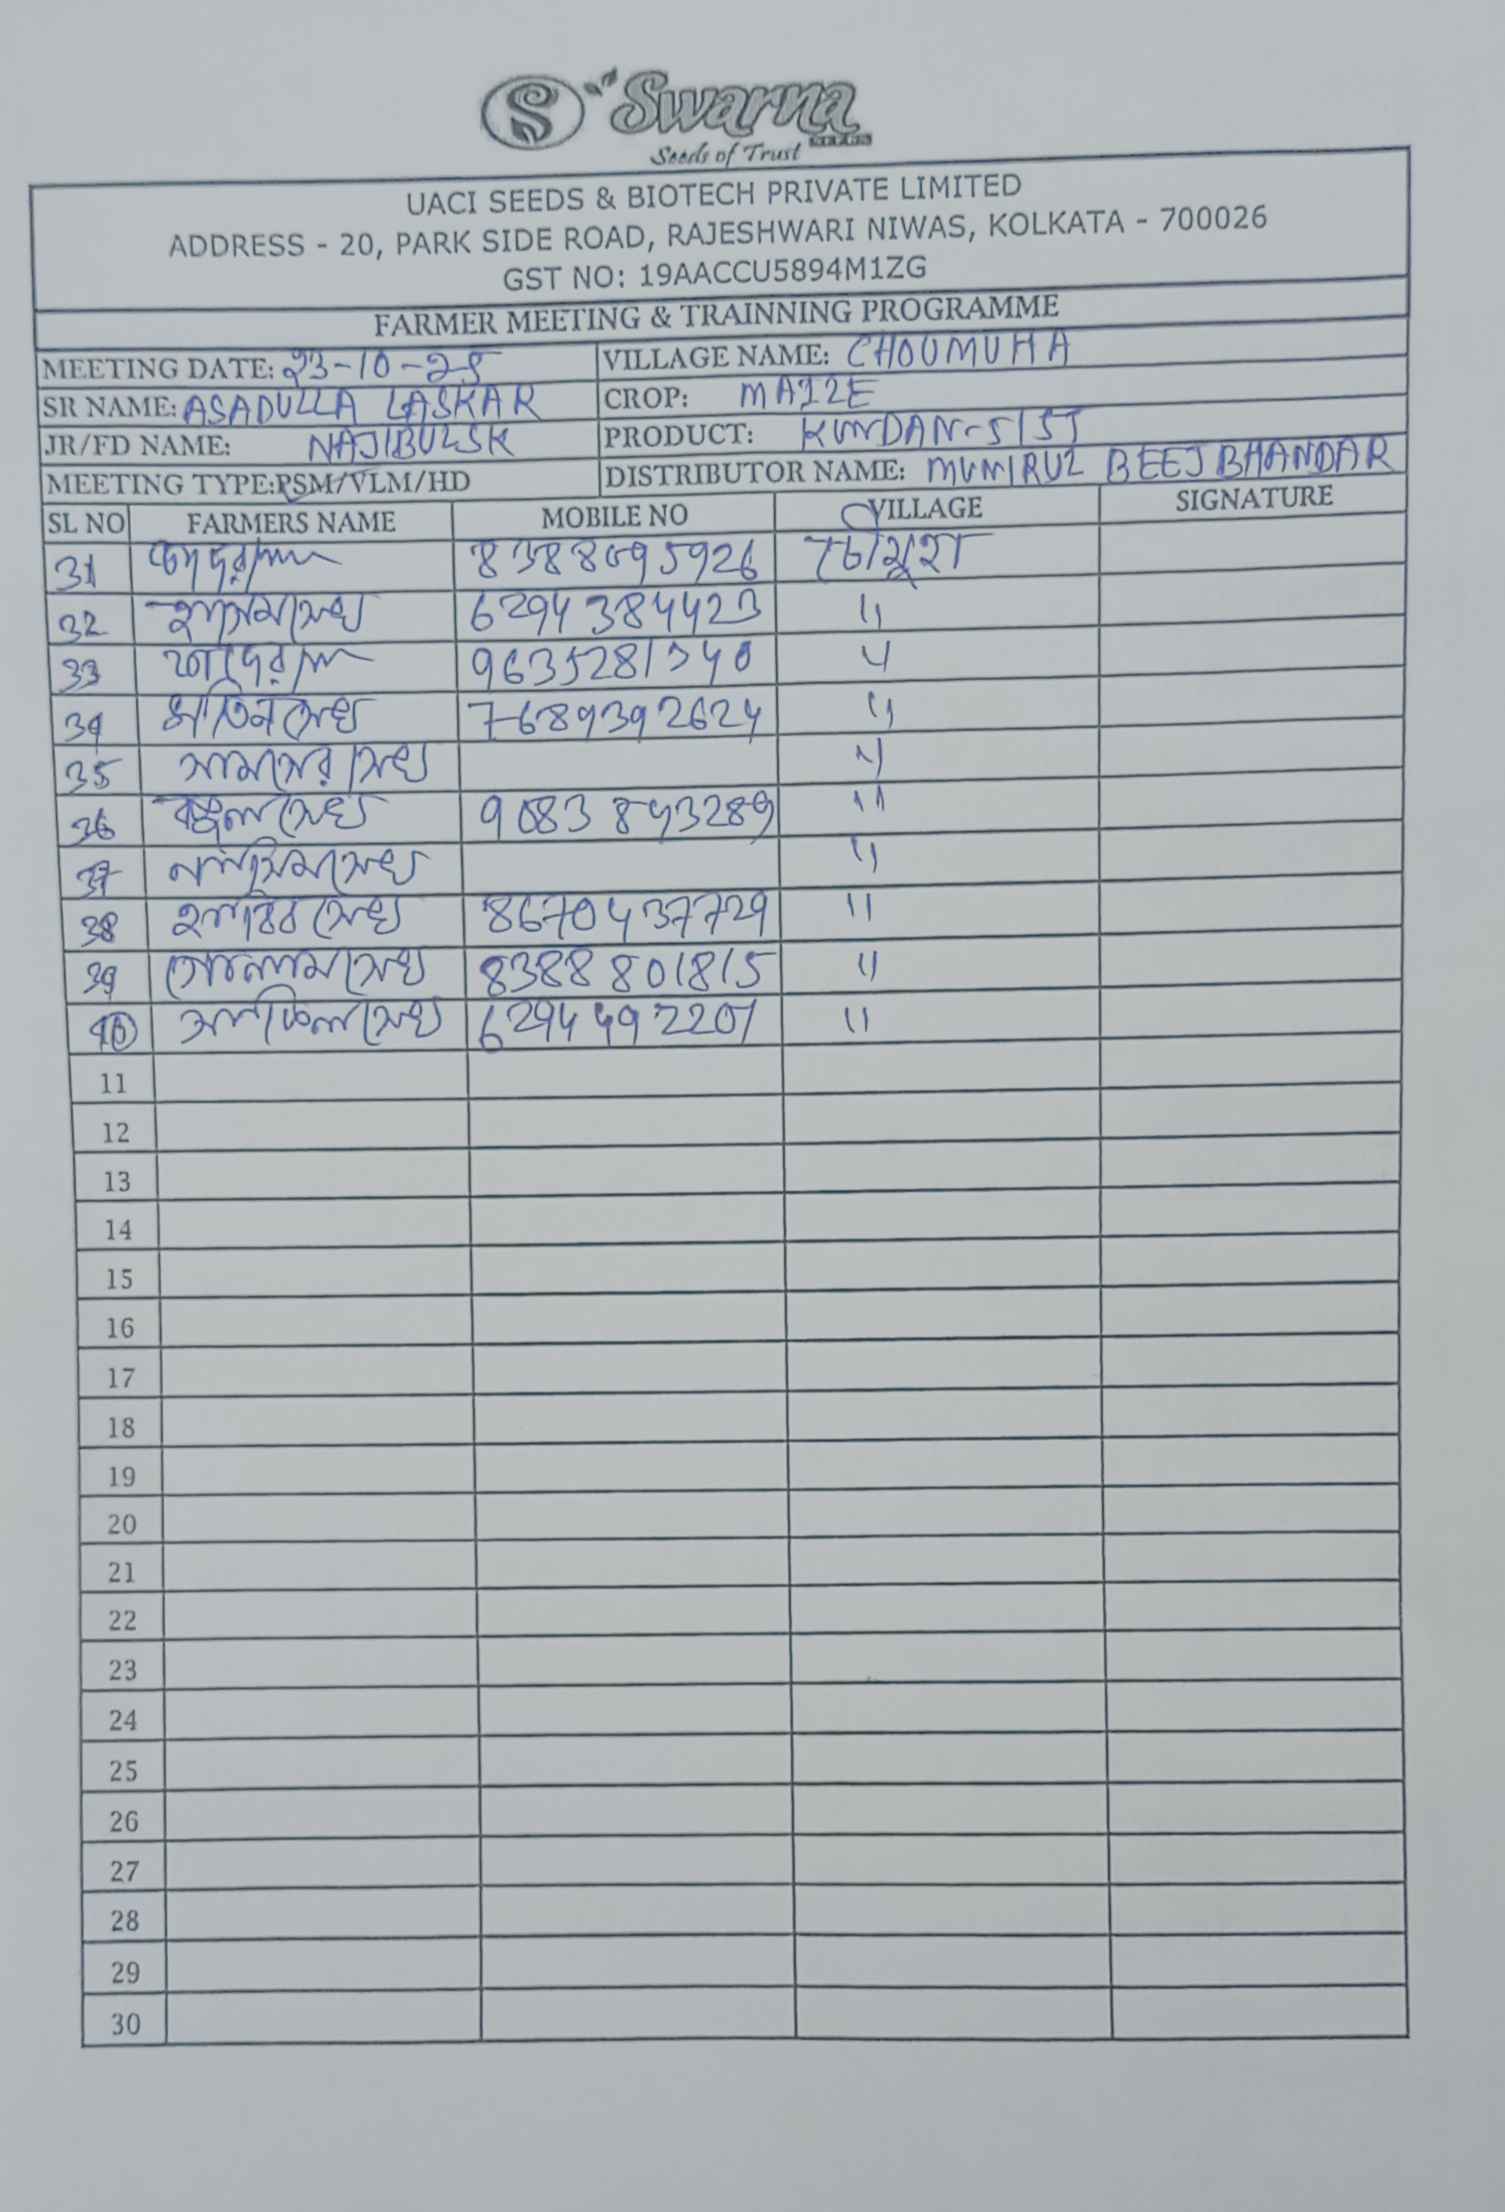 Swarna
SEEDS
Seeds of Trust
UACI SEEDS & BIOTECH PRIVATE LIMITED
ADDRESS - 20, PARK SIDE ROAD, RAJESHWARI NIWAS, KOLKATA - 700026
GST NO: 19AACCU5894M1ZG
FARMER MEETING & TRAINNING PROGRAMME
MEETING DATE: 23-10-25 VILLAGE NAME: CHOUMUHA
SR NAME: ASADULLA LASKAR CROP: MAIZE
JR/FD NAME: NAJIBULSK PRODUCT: KUNDAN-5151
MEETING TYPE:PSM/VLM/HD DISTRIBUTOR NAME: MUNIRUL BEEJ BHANDAR
SL NO FARMERS NAME MOBILE NO VILLAGE SIGNATURE
31 8388095926 চৌমুহা
32 হাসেম সেখ 6294384423 "
33 9635281340 "
34 মতিন সেখ 7689392624 "
35 সামসের সেখ "
36 সেখ 9083843289 "
37 সেখ "
38 হাবিব সেখ 8670437729 "
39 গোলাম সেখ 8388801815 "
40 সেখ 6294492207 "
11
12
13
14
15
16
17
18
19
20
21
22
23
24
25
26
27
28
29
30